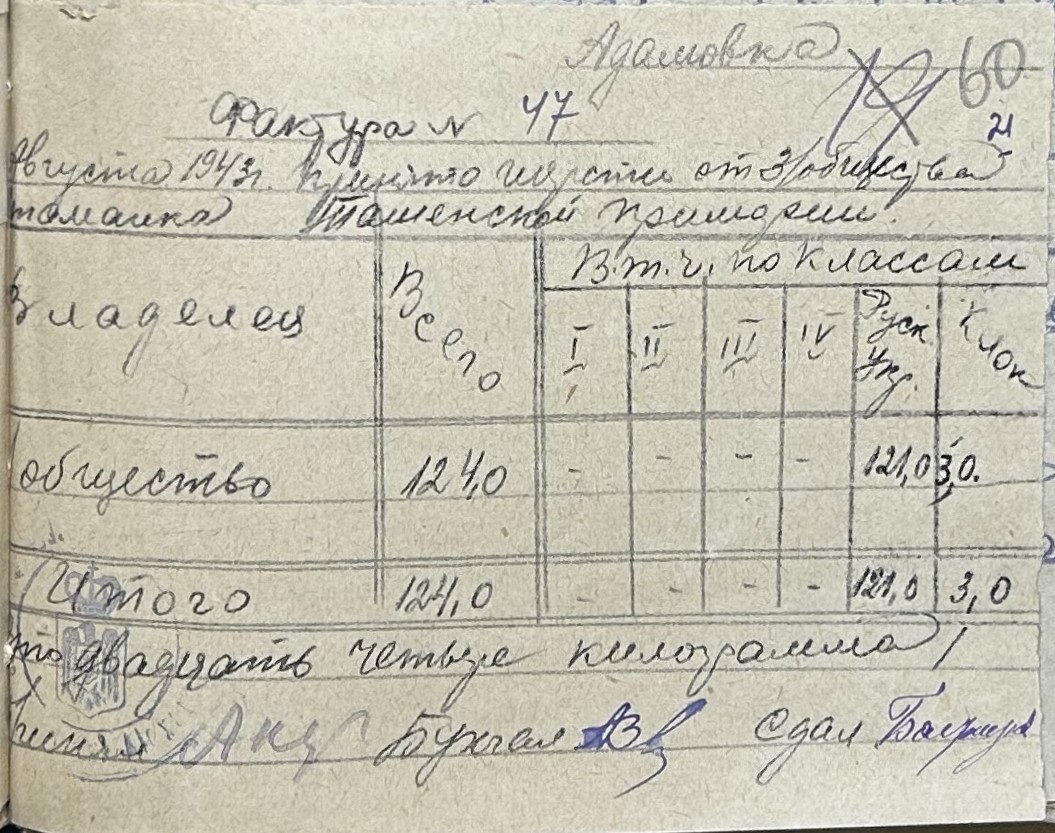 Адамовка
60
Фактура № 47
Августа 1943г. принято шерсти от з/общества
Ташенской примэрии.
Владелец Всего В т.ч. по классам
I II III IV Руск Укр. Клок
общество 124,0 - - - - 121,0 3,0.
Итого 124,0 - - - - 121,0 3,0
сто двадцать четыре килограмма /
Принял Бухгал Сдал